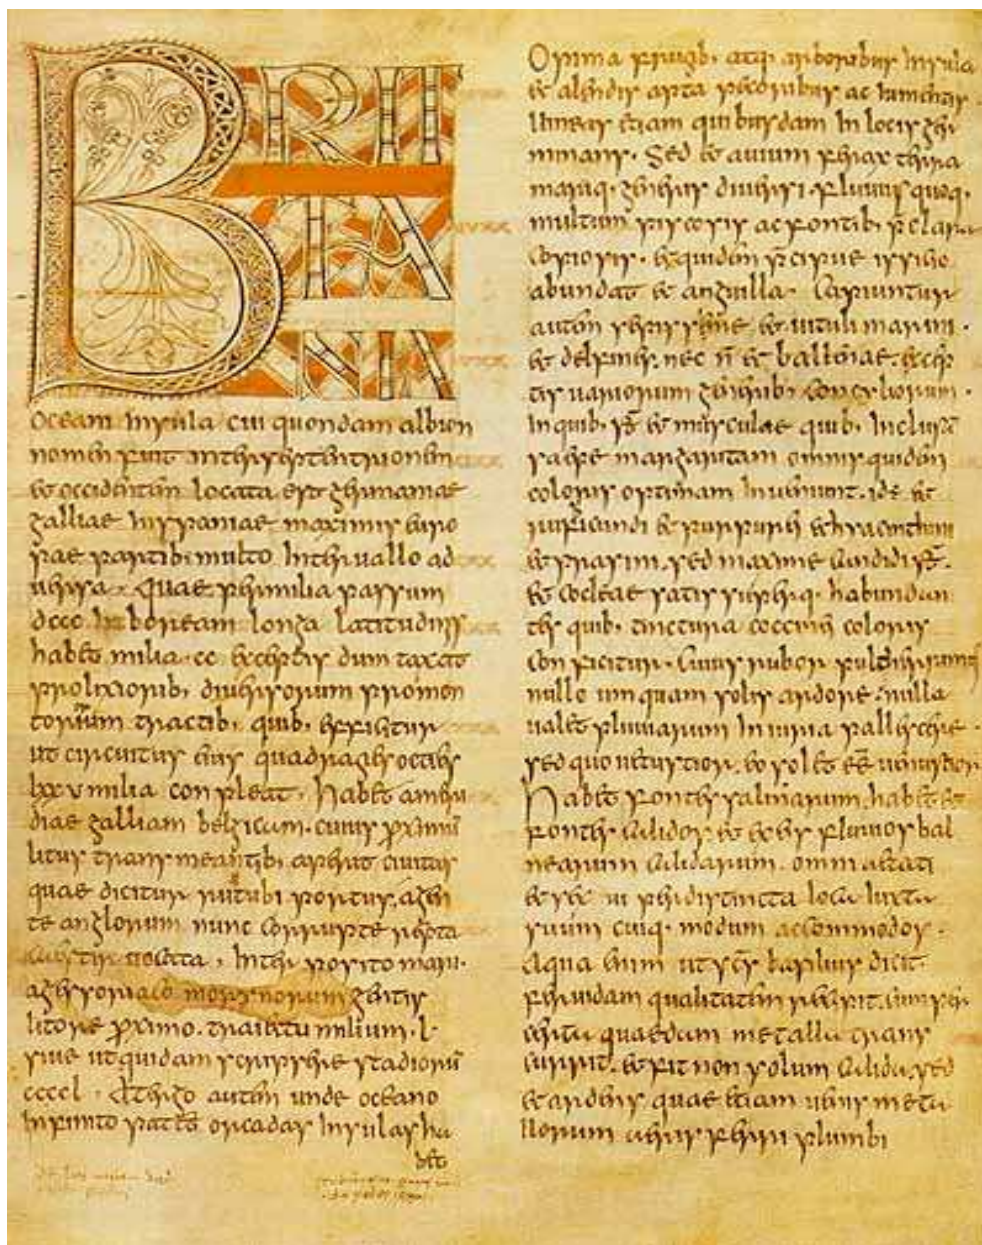 BRIT
TA
NIA
oceani insula cui quondam albion
nomen fuit inter septentrionem
et occidentem locata est germaniae
galliae hispaniae maximis euro
pae partib; multo interuallo ad
uersa. Quae per milia passuum
dccc in boream longa latitudinis
habet milia. cc exceptis dum taxat
prolixiorib; diuersorum promon
toriorum tractib; quib; efficitur
ut circuitus eius quadragies octies
lxxv milia conpleat. habet a meri
die galliam belgicam. cuius proximū
litus transmeantib; aperit ciuitas
quae dicitur rutubi portus. a gen
te anglorum nunc corrupte repta
caestir uocata. Interposito mari.
a gessoriaco morynorum gentis
litore proximo. traiectu milium. l.
siue ut quidam scripsere stadiorū
ccccl. A tergo autem unde oceano
infinito patet orcadas insulas ha
bet
Opima frugib; atq; arboribus insula
et alendis apta pecoribus ac iumentis.
Uineas etiam quibusdam in locis ger
minans. Sed et auium ferax terra
mariq; generis diuersi. fluuiis quoq;
multum piscosis ac fontib; p̄clara
copiosis. et quidem p̄cipue issicio
abundat et anguilla. Capiuntur
autem sepissime et uituli marini.
et delfines. nec n̄ et ballenae. excep
tis uariorum generib; concyliorum.
In quib; s̄t et musculae quib; inclusā
saepe margaritam omnis quidem
coloris optimam inueniunt. id ē et
rubicundi et purpurei et hyacinthini
et prasini. sed maxime candidi. s̄t.
et cocleae satis superq; habundan
tes quib; tinctura coccinei coloris
conficitur. Cuius rubor pulcherrimus
nullo umquam solis ardore. nulla
ualet pluuiarum iniuria pallescere.
sed quo uetustior. eo solet eē uenustior.
Habet fontes salinarum. habet et
fontes calidos et ex eis fluuios bal
nearum calidarum. omni aetati
et sexui per distincta loca iuxta
suum cuiq; modum accommodos.
Aqua enim ut s̄cs basilius dicit.
feruidam qualitatem recipit. cum per
certa quaedam metalla trans
currit. et fit non solum calida. sed
et ardens quae etiam uenis meta
llorum aeris ferri plumbi